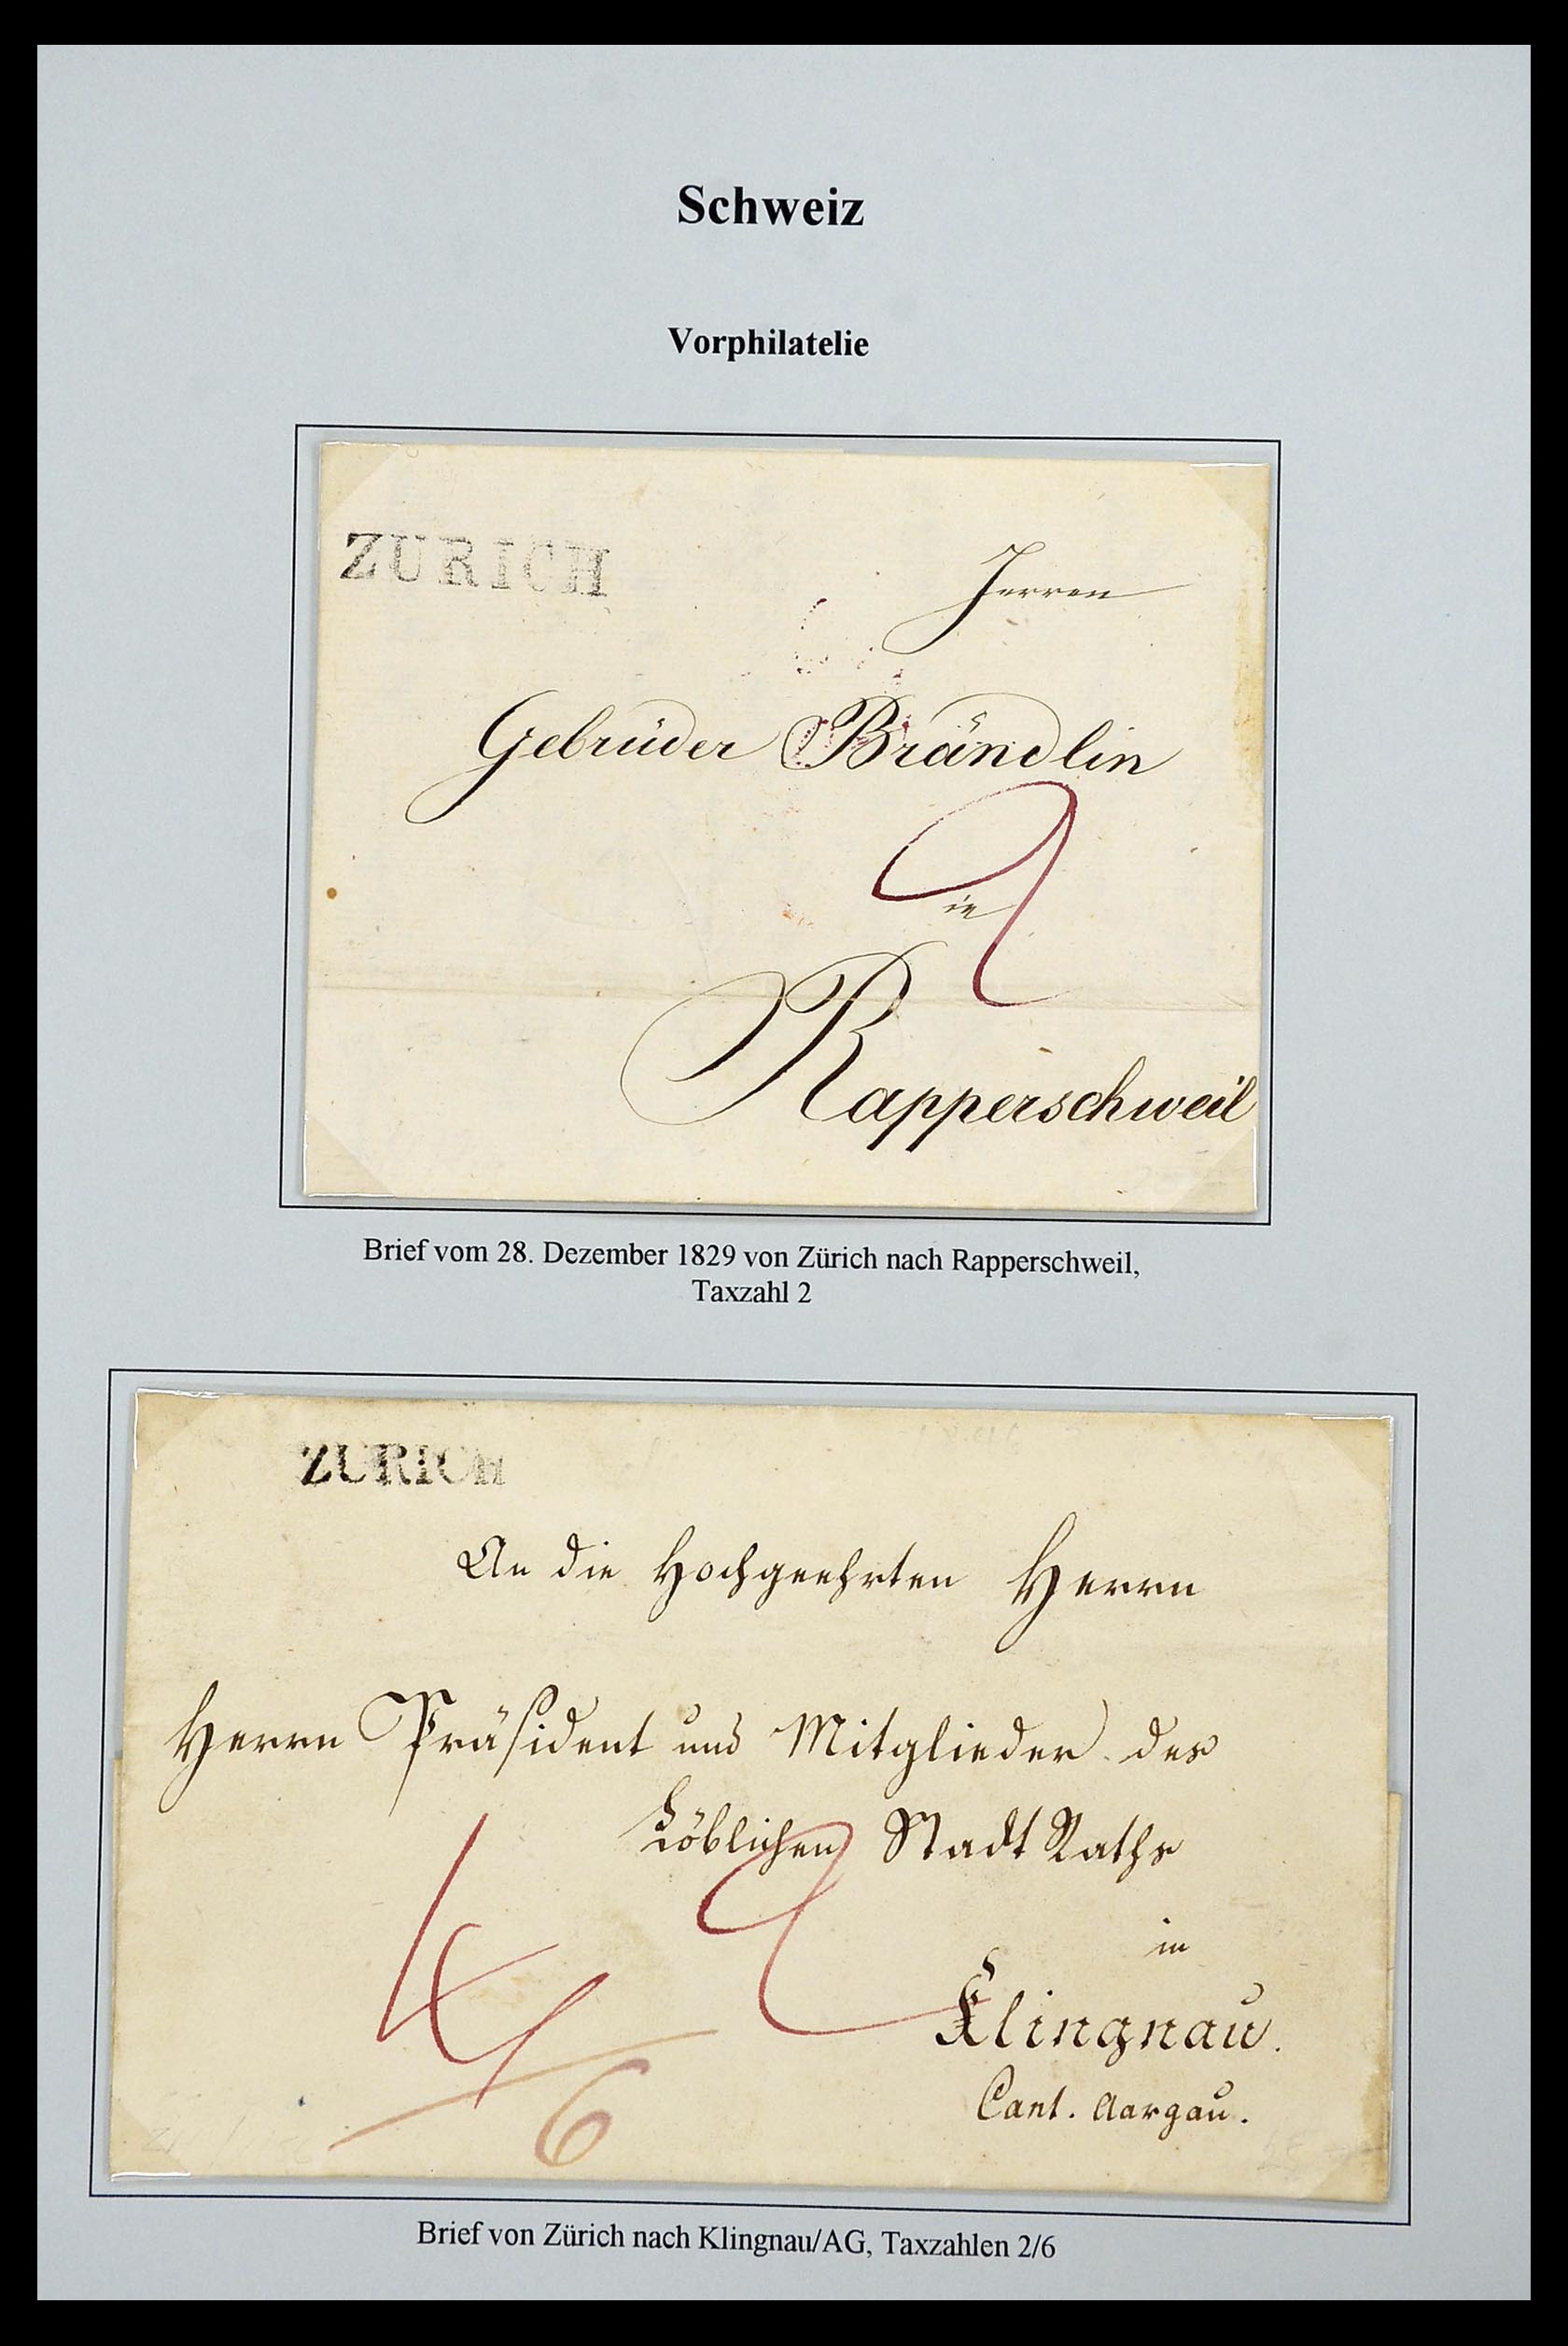 Schweiz
Vorphilatelie
ZURICH
Herren
Gebrüder Brändlin
2
in
Rapperschweil
Brief vom 28. Dezember 1829 von Zürich nach Rapperschweil,
Taxzahl 2
ZURICH
An die Hochgeehrten Herrn
Herrn Präsident und Mitglieder des
Löblichen Stadt Raths
2
in
Klingnau.
6
Cant. Aargau.
Brief von Zürich nach Klingnau/AG, Taxzahlen 2/6